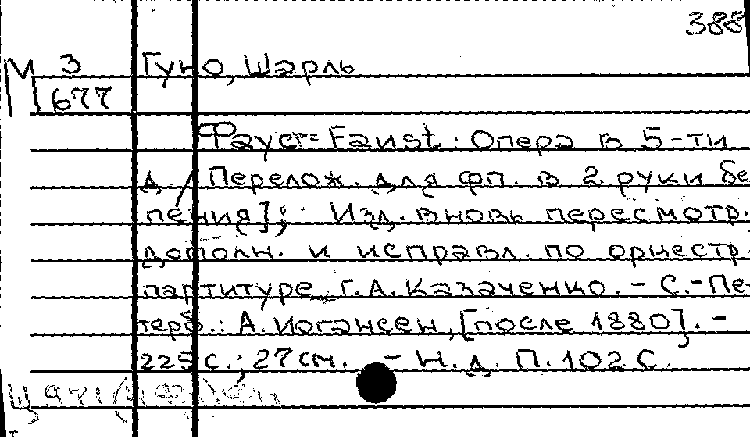 388
М 3 Гуно, Шарль
677
Фауст = Faust : Опера в 5-ти
д. / Перелож. для фп. в 2 руки бе
пения]; Изд. вновь пересмотр.
дополн. и исправл. по оркестр.
партитуре Г.А. Казаченко. - С.-Пе-
терб. : А. Иогансен, [после 1880]. -
225 с.; 27 см. - Н.д. П. 102 С.